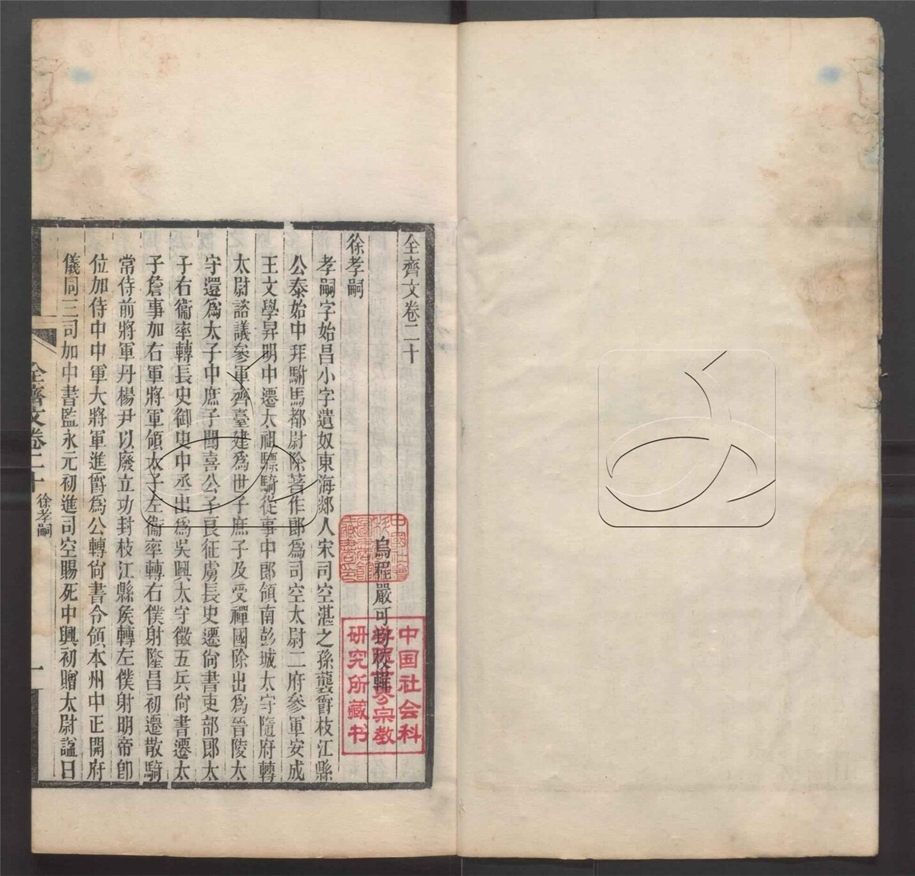 全齊文卷二十
烏程嚴可均校輯
徐孝嗣
孝嗣字始昌小字遺奴東海郯人宋司空湛之孫襲爵枝江縣
公泰始中拜駙馬都尉除著作郎爲司空太尉二府參軍安成
王文學昇明中遷太祖驃騎從事中郎領南彭城太守隨府轉
太尉諮議參軍齊臺建爲世子庶子及受禪國除出爲晉陵太
守還爲太子中庶子聞喜公子良征虜長史遷尙書吏部郎太
子右衞率轉長史御史中丞出爲吳興太守徵五兵尙書遷太
子詹事加右軍將軍領太子左衞率轉右僕射隆昌初遷散騎
常侍前將軍丹楊尹以廢立功封枝江縣矦轉左僕射明帝卽
位加侍中中軍大將軍進爵爲公轉尙書令領本州中正開府
儀同三司加中書監永元初進司空賜死中興初贈太尉諡曰
全齊文卷二十 徐孝嗣
一
中国社会科
学院世界宗教
研究所藏书